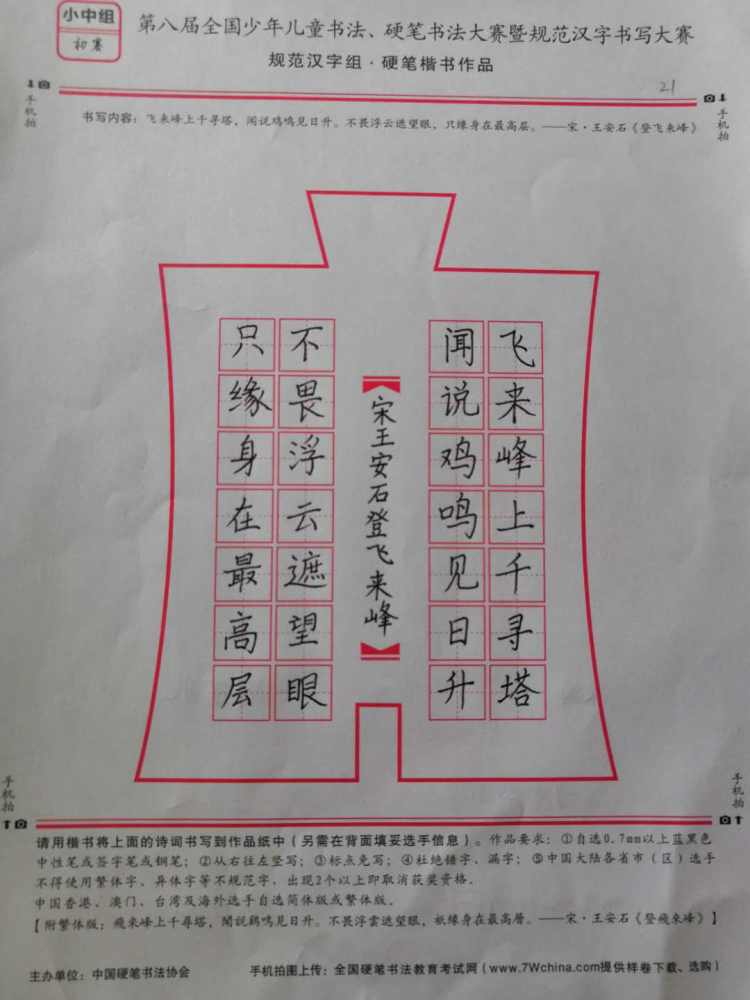 小中组
初赛
第八届全国少年儿童书法、硬笔书法大赛暨规范汉字书写大赛
规范汉字组·硬笔楷书作品
21
手机拍
手机拍
书写内容：飞来峰上千寻塔，闻说鸡鸣见日升。不畏浮云遮望眼，只缘身在最高层。——宋·王安石《登飞来峰》
飞来峰上千寻塔
闻说鸡鸣见日升
宋王安石登飞来峰
不畏浮云遮望眼
只缘身在最高层
手机拍
手机拍
请用楷书将上面的诗词书写到作品纸中（另需在背面填妥选手信息）。作品要求：①自选0.7mm以上蓝黑色
中性笔或签字笔或钢笔；②从右往左竖写；③标点免写；④杜绝错字、漏字；⑤中国大陆各省市（区）选手
不得使用繁体字、异体字等不规范字，出现2个以上即取消获奖资格。
中国香港、澳门、台湾及海外选手自选简体版或繁体版。
【附繁体版：飛來峰上千尋塔，聞說鷄鳴見日升。不畏浮雲遮望眼，祇緣身在最高層。——宋·王安石《登飛來峰》】
主办单位：中国硬笔书法协会
手机拍图上传：全国硬笔书法教育考试网（www.7Wchina.com提供样卷下载、选购）